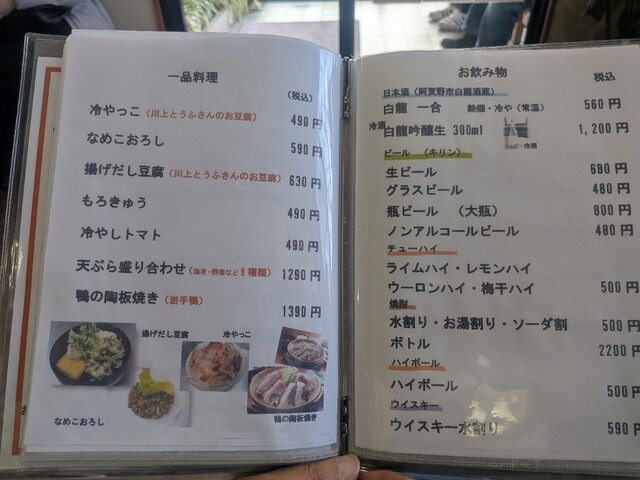 一品料理
(税込)
冷やっこ(川上とうふさんのお豆腐) 490円
なめこおろし 590円
揚げだし豆腐(川上とうふさんのお豆腐) 630円
もろきゅう 490円
冷やしトマト 490円
天ぷら盛り合わせ(海老・野菜など9種類) 1290円
鴨の陶板焼き(岩手鴨) 1390円
揚げだし豆腐
冷やっこ
なめこおろし
鴨の陶板焼き
お飲み物
税込
日本酒(阿賀野市白龍酒蔵)
白龍 一合 熱燗・冷や(常温) 560円
冷酒 白龍吟醸生 300ml 1,200円
冷酒
ビール (キリン)
生ビール 680円
グラスビール 480円
瓶ビール (大瓶) 800円
ノンアルコールビール 480円
チューハイ
ライムハイ・レモンハイ
ウーロンハイ・梅干ハイ 500円
焼酎
水割り・お湯割り・ソーダ割 500円
ボトル 2200円
ハイボール
ハイボール 500円
ウイスキー
ウイスキー水割り 590円